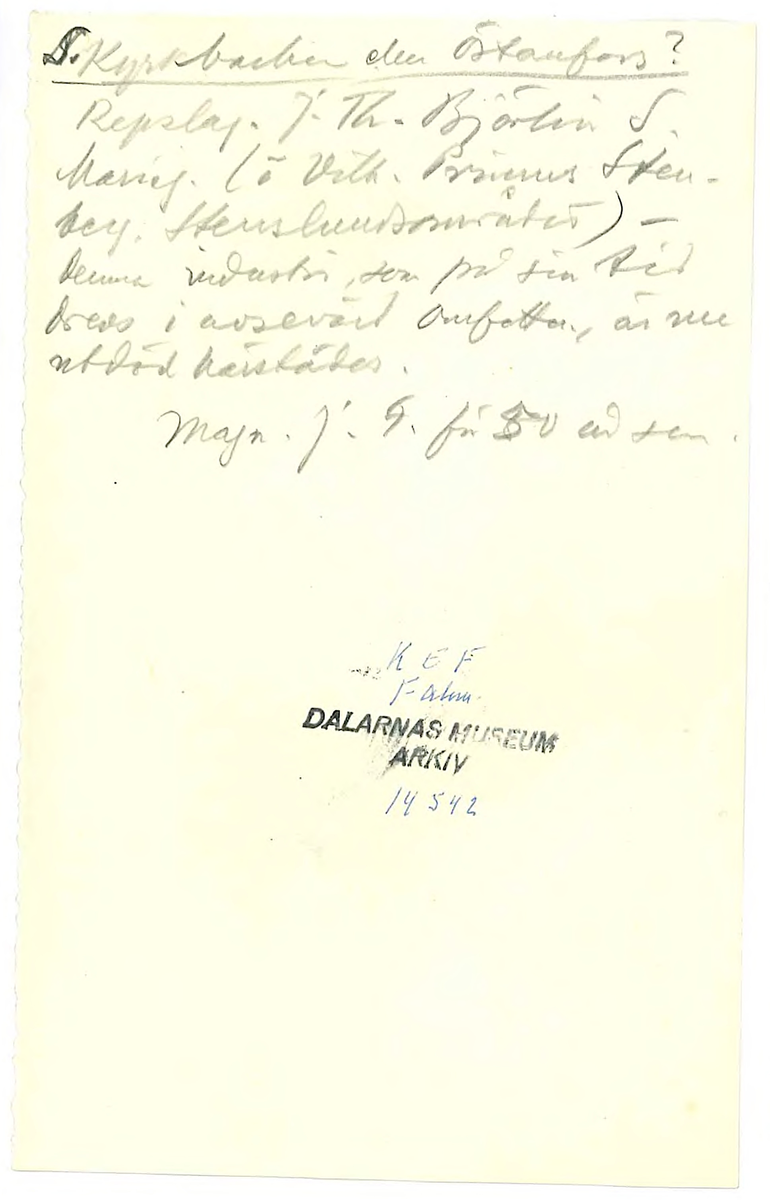 S. Kyrkbacken den Östanfors?
Repslag. J. Th. Björlin S.
Marieg. (ö Vilh. Primus Sten-
berg. Stenslundsområdet) –
Denna industri, som på sin tid
drevs i avsevärd omfattn., är nu
utdöd härstädes.
Magn. J. G. för 50 år sen.
K E F
Falun
DALARNAS MUSEUM
ARKIV
14 542